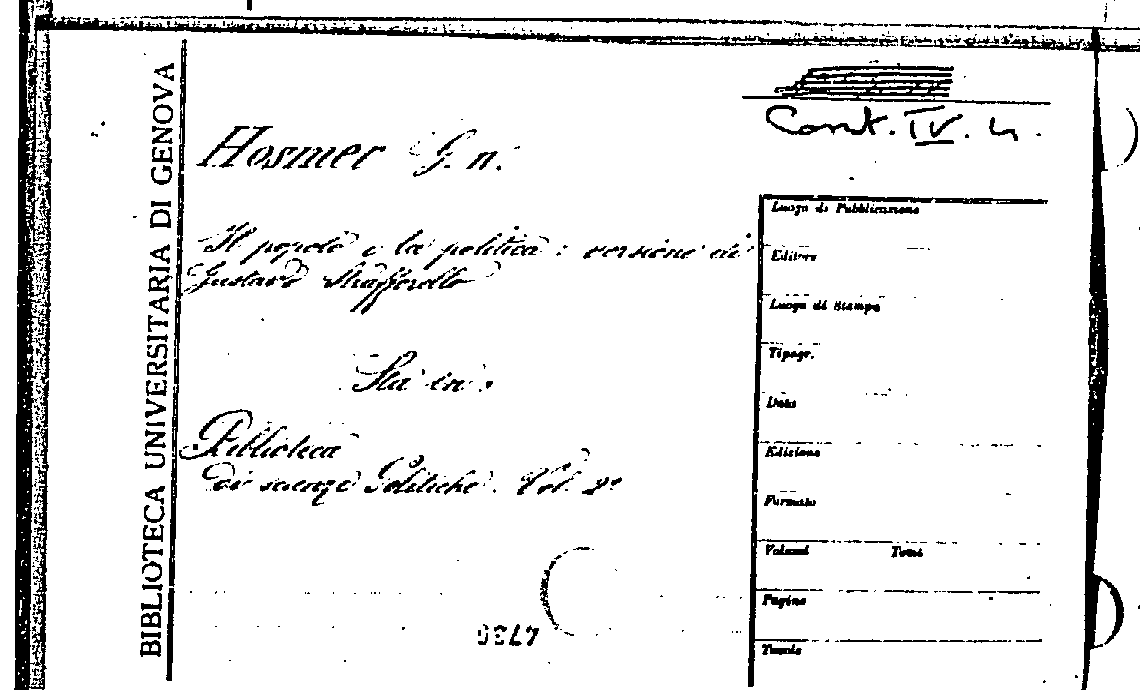 BIBLIOTECA UNIVERSITARIA DI GENOVA
Cont. IV. 4.
Hosmer G. n.
Il popolo e la politica : versione di
Gustavo Strafforello
Sta in :
Biblioteca
di scienze Politiche. Vol. 2º
Luogo di Pubblicazione
Editore
Luogo di Stampa
Tipogr.
Data
Edizione
Formato
Volumi Tomi
Pagine
Tavole